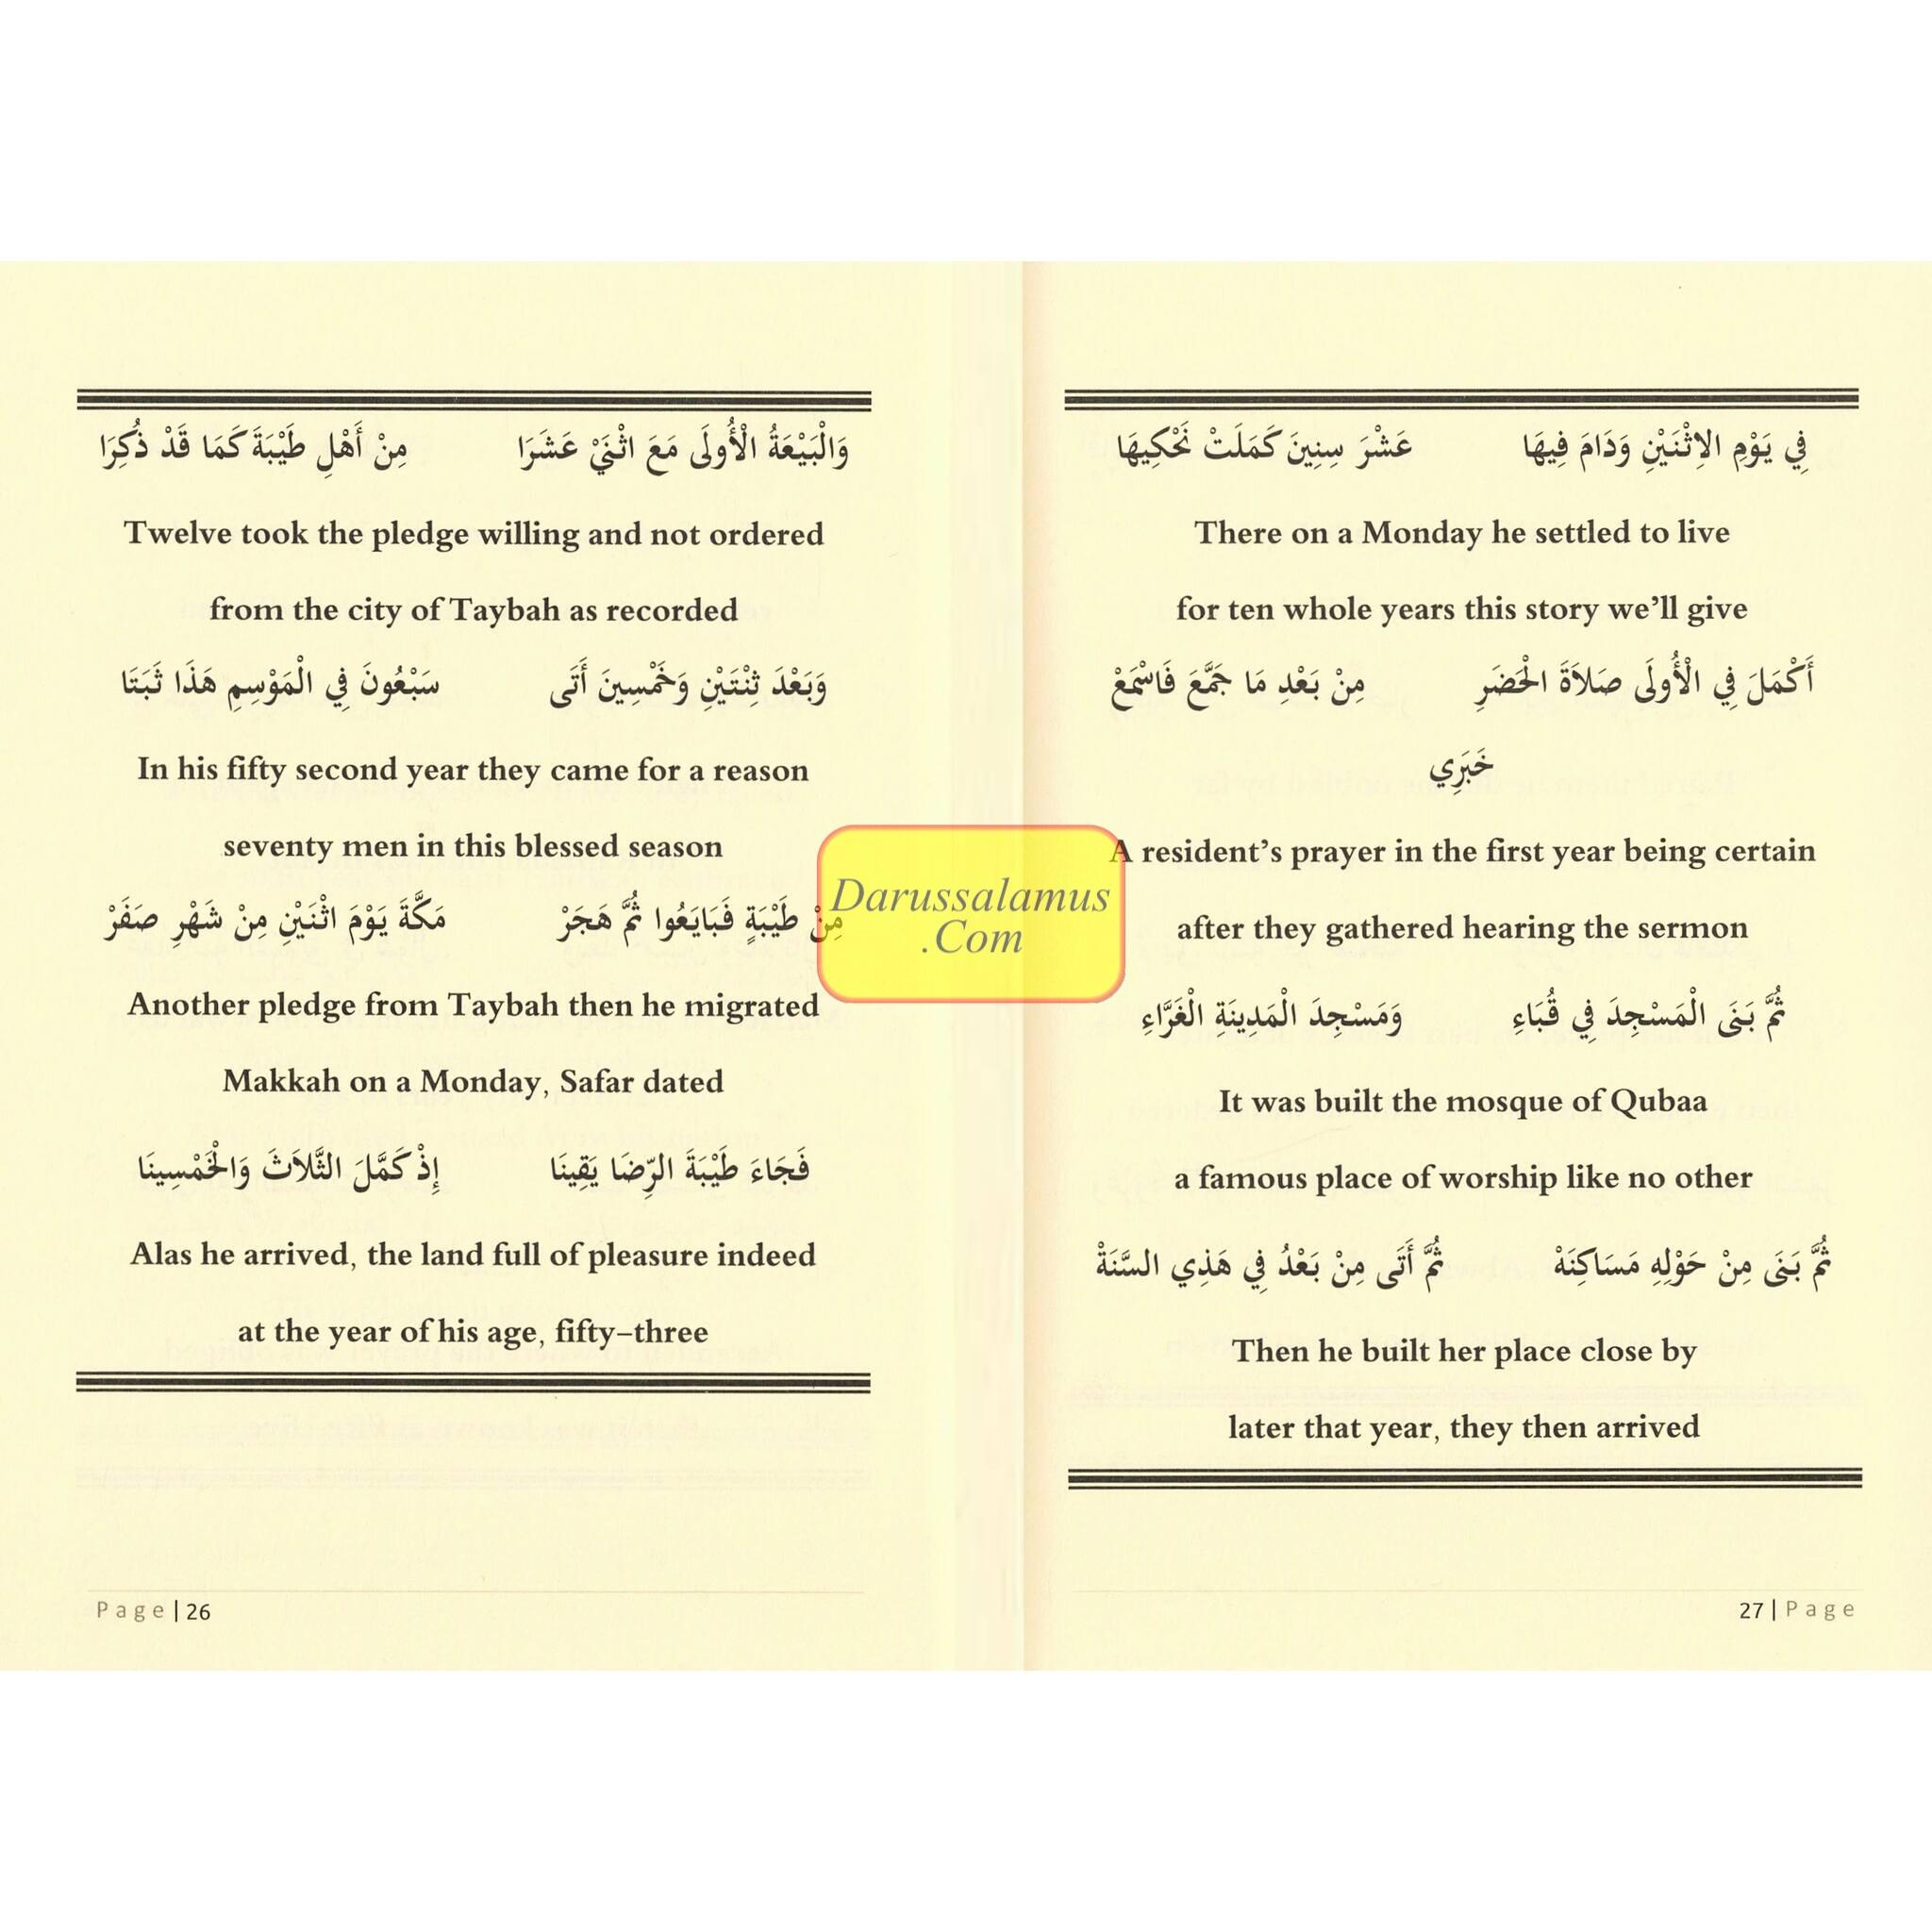 وَالْبَيْعَةُ الْأُولَى مَعَ اثْنَيْ عَشَرَا مِنْ أَهْلِ طَيْبَةَ كَمَا قَدْ ذُكِرَا
Twelve took the pledge willing and not ordered
from the city of Taybah as recorded
وَبَعْدَ ثِنْتَيْنِ وَخَمْسِينَ أَتَى سَبْعُونَ فِي الْمَوْسِمِ هَذَا ثَبَتَا
In his fifty second year they came for a reason
seventy men in this blessed season
مِنْ طَيْبَةٍ فَبَايَعُوا ثُمَّ هَجَرْ مَكَّةَ يَوْمَ اثْنَيْنِ مِنْ شَهْرِ صَفَرْ
Another pledge from Taybah then he migrated
Makkah on a Monday, Safar dated
فَجَاءَ طَيْبَةَ الرِّضَا يَقِينَا إِذْ كَمَّلَ الثَّلاَثَ وَالْخَمْسِينَا
Alas he arrived, the land full of pleasure indeed
at the year of his age, fifty–three
Page | 26
فِي يَوْمِ الاِثْنَيْنِ وَدَامَ فِيهَا عَشْرَ سِنِينَ كَمَلَتْ نَحْكِيهَا
There on a Monday he settled to live
for ten whole years this story we’ll give
أَكْمَلَ فِي الْأُولَى صَلاَةَ الْحَضَرِ مِنْ بَعْدِ مَا جَمَّعَ فَاسْمَعْ
خَبَرِي
A resident’s prayer in the first year being certain
after they gathered hearing the sermon
ثُمَّ بَنَى الْمَسْجِدَ فِي قُبَاءِ وَمَسْجِدَ الْمَدِينَةِ الْغَرَّاءِ
It was built the mosque of Qubaa
a famous place of worship like no other
ثُمَّ بَنَى مِنْ حَوْلِهِ مَسَاكِنَهْ ثُمَّ أَتَى مِنْ بَعْدُ فِي هَذِي السَّنَةْ
Then he built her place close by
later that year, they then arrived
27 | Page
Darussalamus
.Com